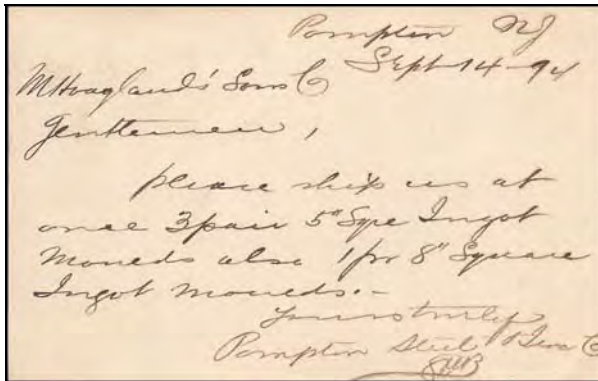 Pompton NJ
Sept-14-94
M Hoagland's Sons Co
Gentlemen,
please ship us at
once 3 pair 5" Sqre Ingot
Moulds also 1 pr 8" Square
Ingot moulds.-
Yours truly
Pompton Steel & Iron Co